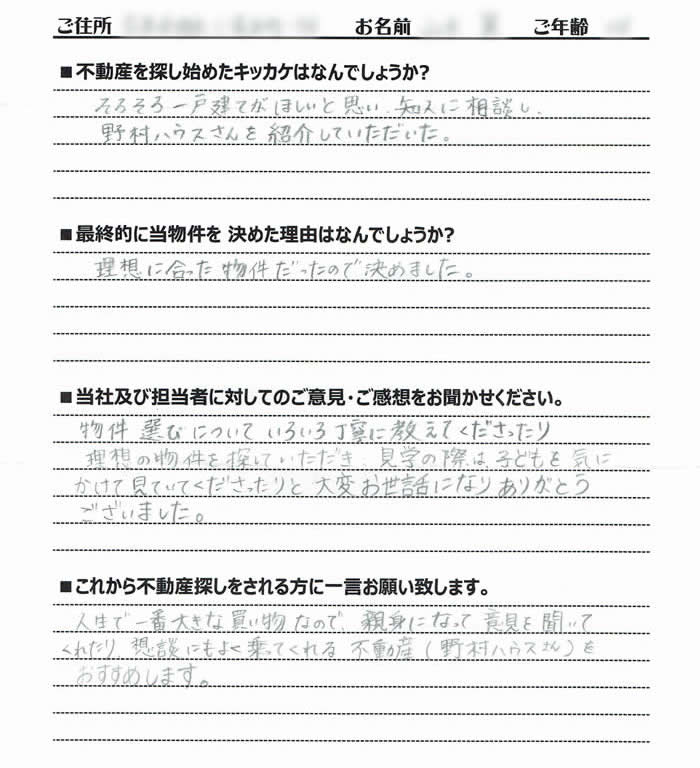 ご住所 お名前 ご年齢
■不動産を探し始めたキッカケはなんでしょうか?
そろそろ一戸建てがほしいと思い、知人に相談し、
野村ハウスさんを紹介していただいた。
■最終的に当物件を 決めた理由はなんでしょうか?
理想に合った物件だったので決めました。
■当社及び担当者に対してのご意見・ご感想をお聞かせください。
物件選びについていろいろ丁寧に教えてくださったり
理想の物件を探していただき、見学の際は、子どもを気に
かけて見ていてくださったりと大変お世話になりありがとう
ございました。
■これから不動産探しをされる方に一言お願い致します。
人生で一番大きな買い物なので、親身になって意見を聞いて
くれたり、想談にもよく乗ってくれる不動産(野村ハウスさん)を
おすすめします。